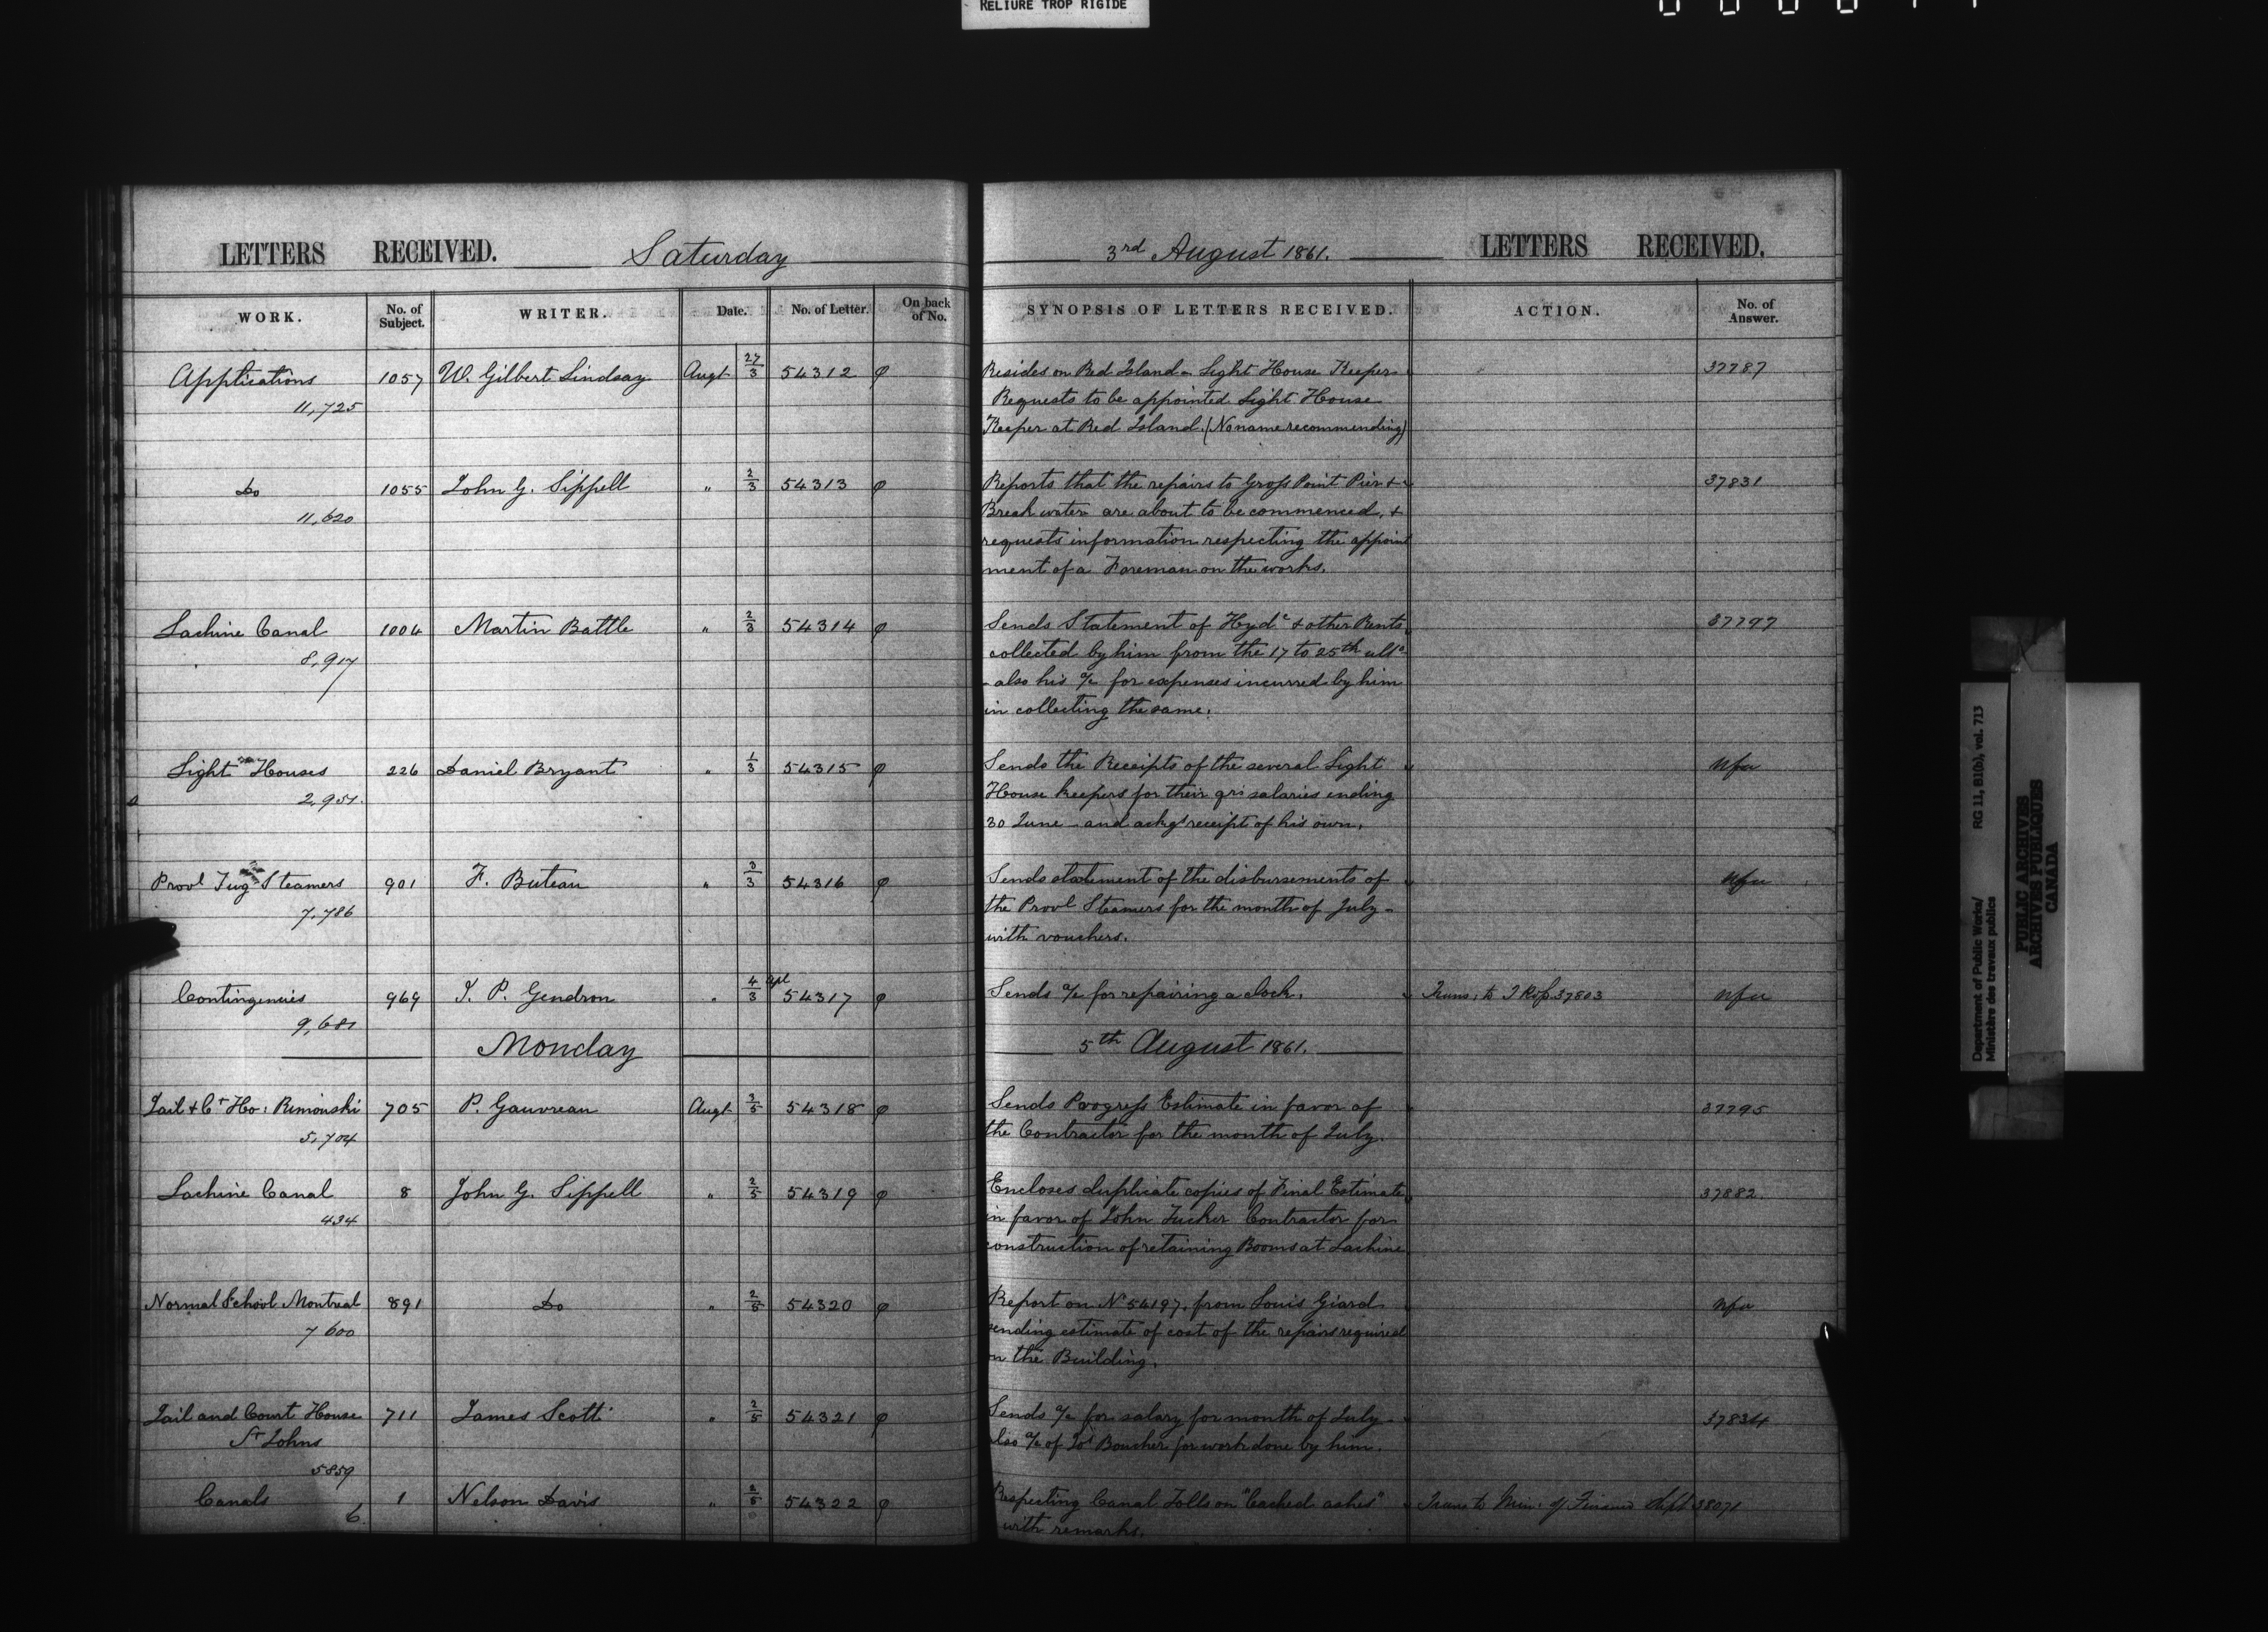 RELIURE TROP RIGIDE
LETTERS RECEIVED. Saturday 3rd August 1861. LETTERS RECEIVED.
WORK. No. of Subject. WRITER. Date. No. of Letter. On back of No. SYNOPSIS OF LETTERS RECEIVED. ACTION. No. of Answer.
Applications 1057 W. Gilbert Lindsay Augt 27/3 54312 φ Resides on Red Island - Light House Keeper 37787
11,725 Requests to be appointed Light House
Keeper at Red Island. (No name recommending)
Do 1055 John G. Sippell " 2/3 54313 φ Reports that the repairs to Gross Point Pier + 37831
11,620 Break water are about to be commenced, +
requests information respecting the appoint
ment of a Foreman on the works.
Lachine Canal 1004 Martin Battle " 2/3 54314 φ Sends Statement of Hydc + other Rents 37797
8,917 collected by him from the 17 to 25th ulto
- also his a/c for expenses incurred by him
in collecting the same.
Light Houses 226 Daniel Bryant " 1/3 54315 φ Sends the Receipts of the several Light Nfa
2,951. House keepers for their qrs salaries ending
30 June - and ackgs receipt of his own.
Provl Tug Steamers 901 F. Buteau " 3/3 54316 φ Sends statement of the disbursements of Nfa
7,786 the Provl Steamers for the month of July -
with vouchers.
Contingencies 969 J. P. Gendron " 4/3 apl 54317 φ Sends a/c for repairing a clock. Trans: to J Rose 37803 Nfa
9,681
Monday 5th August 1861.
Jail + Ct Ho: Rimouski 705 P. Gauvreau Augt 3/5 54318 φ Sends Progress Estimate in favor of 37795
5,704 the Contractor for the month of July.
Lachine Canal 8 John G. Sippell " 2/5 54319 φ Encloses duplicate copies of Final Estimate 37882
434 in favor of John Tucker Contractor for
construction of retaining Booms at Lachine
Normal School Montreal 891 Do " 2/5 54320 φ Report on No 54197, from Louis Giard Nfa
7 600 sending estimate of cost of the repairs required
on the Building.
Jail and Court House 711 James Scott " 2/5 54321 φ Sends a/c for salary for month of July - 37834
St Johns also a/c of Jos Boucher for work done by him.
5859
Canals 1 Nelson Davis " 2/5 54322 φ Respecting Canal Tolls on "leached ashes" Trans to Min: of Finance Sept 38071
6. with remarks.
Department of Public Works/ RG 11, B1(b), vol. 713
Ministère des travaux publics
PUBLIC ARCHIVES
ARCHIVES PUBLIQUES
CANADA